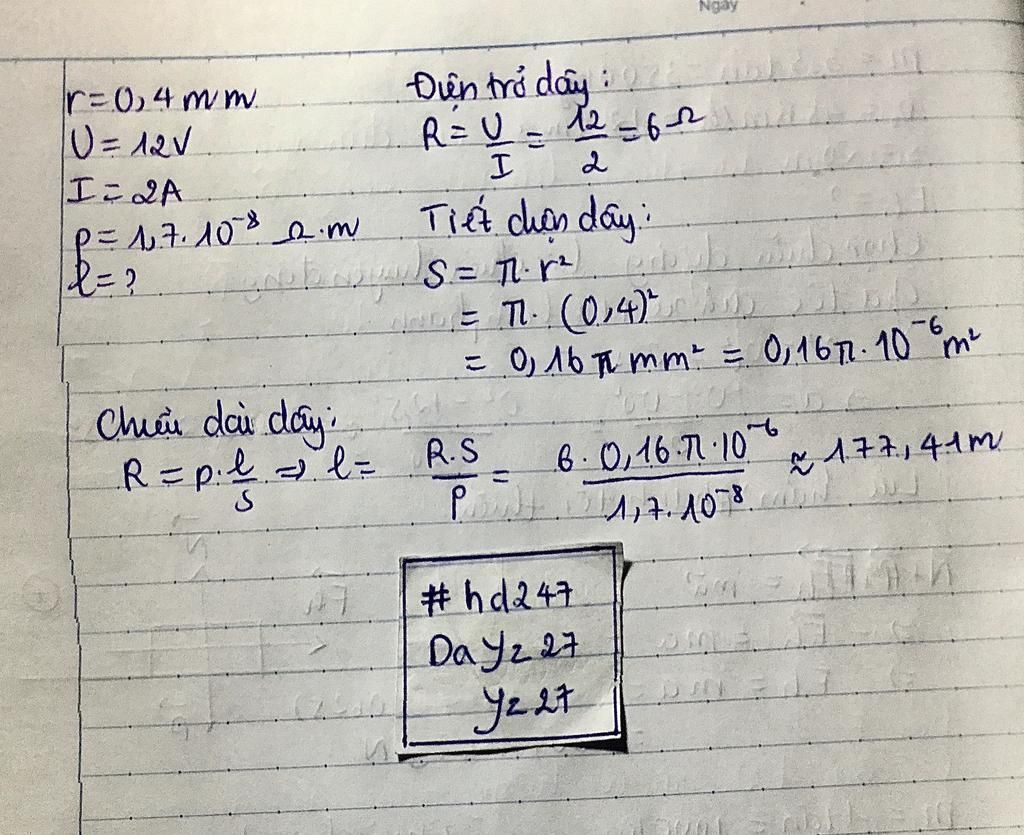 Ngày
r = 0,4 mm
U = 12V
I = 2A
ρ = 1,7.10⁻⁸ Ω.m
l = ?
Điện trở dây:
R = U/I = 12/2 = 6 Ω
Tiết diện dây:
S = π.r²
= π. (0,4)²
= 0,16π mm² = 0,16π.10⁻⁶ m²
Chiều dài dây:
R = ρ.l/S ⇒ l = R.S/ρ = 6.0,16.π.10⁻⁶/1,7.10⁻⁸ ≈ 177,41m
#hd247
Dayz27
yz27